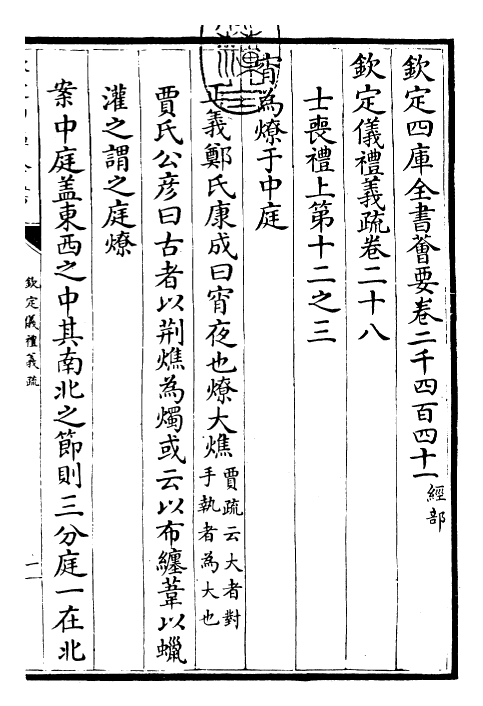 欽定四庫全書薈要卷二千四百四十一經部
欽定儀禮義疏卷二十八
士喪禮上第十二之三
宵為燎于中庭
正義鄭氏康成曰宵夜也燎大燋賈疏云大者對手執者為大也
賈氏公彦曰古者以荆燋為燭或云以布纏葦以蠟
灌之謂之庭燎
案中庭盖東西之中其南北之節則三分庭一在北
欽定儀禮義疏